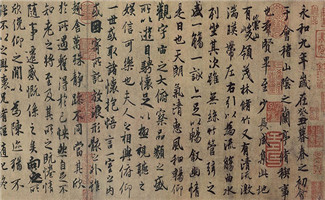 永和九年歲在癸丑暮春之初會
于會稽山陰之蘭亭脩稧事
也群賢畢至少長咸集此地
有崇山峻領茂林脩竹又有清流激
湍暎帶左右引以為流觴曲水
列坐其次雖無絲竹管弦之
盛一觴一詠亦足以暢敘幽情
是日也天朗氣清惠風和暢仰
觀宇宙之大俯察品類之盛
所以遊目騁懷足以極視聽之
娛信可樂也夫人之相與俯仰
一世或取諸懷抱悟言一室之內
或因寄所託放浪形骸之外雖
趣舍萬殊靜躁不同當其欣
於所遇暫得於己怏然自足不
知老之將至及其所之既惓情
隨事遷感慨係之矣向之所
欣俛仰之閒以為陳迹猶不